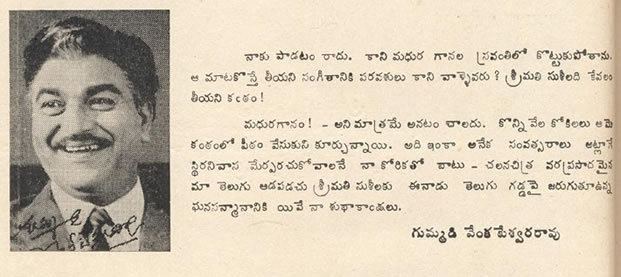 నాకు పాడటం రాదు. కాని మధుర గానాల స్రవంతిలో కొట్టుకుపోతాను.
ఆ మాటకొస్తే తీయని సంగీతానికి పరవశులు కాని వాళ్ళెవరు ? శ్రీమతి సుశీలది కేవలం
తీయని కంఠం !
మధురగానం ! - అని మాత్రమే అనటం చాలదు. కొన్ని వేల కోకిలలు ఆమె
కంఠంలో పీఠం వేసుకుని కూర్చున్నాయి. అది ఇంకా అనేక సంవత్సరాలు అట్లానే
స్థిరనివాస మేర్పరచుకోవాలనే నా కోరికతో పాటు - చలనచిత్ర వరప్రసాదమైన
మా తెలుగు ఆడపడచు శ్రీమతి సుశీలకు ఈనాడు తెలుగు గడ్డపై జరుగుతూఉన్న
ఘనసన్మానానికి యివే నా శుభాకాంక్షలు.
గుమ్మడి వేంకటేశ్వరరావు